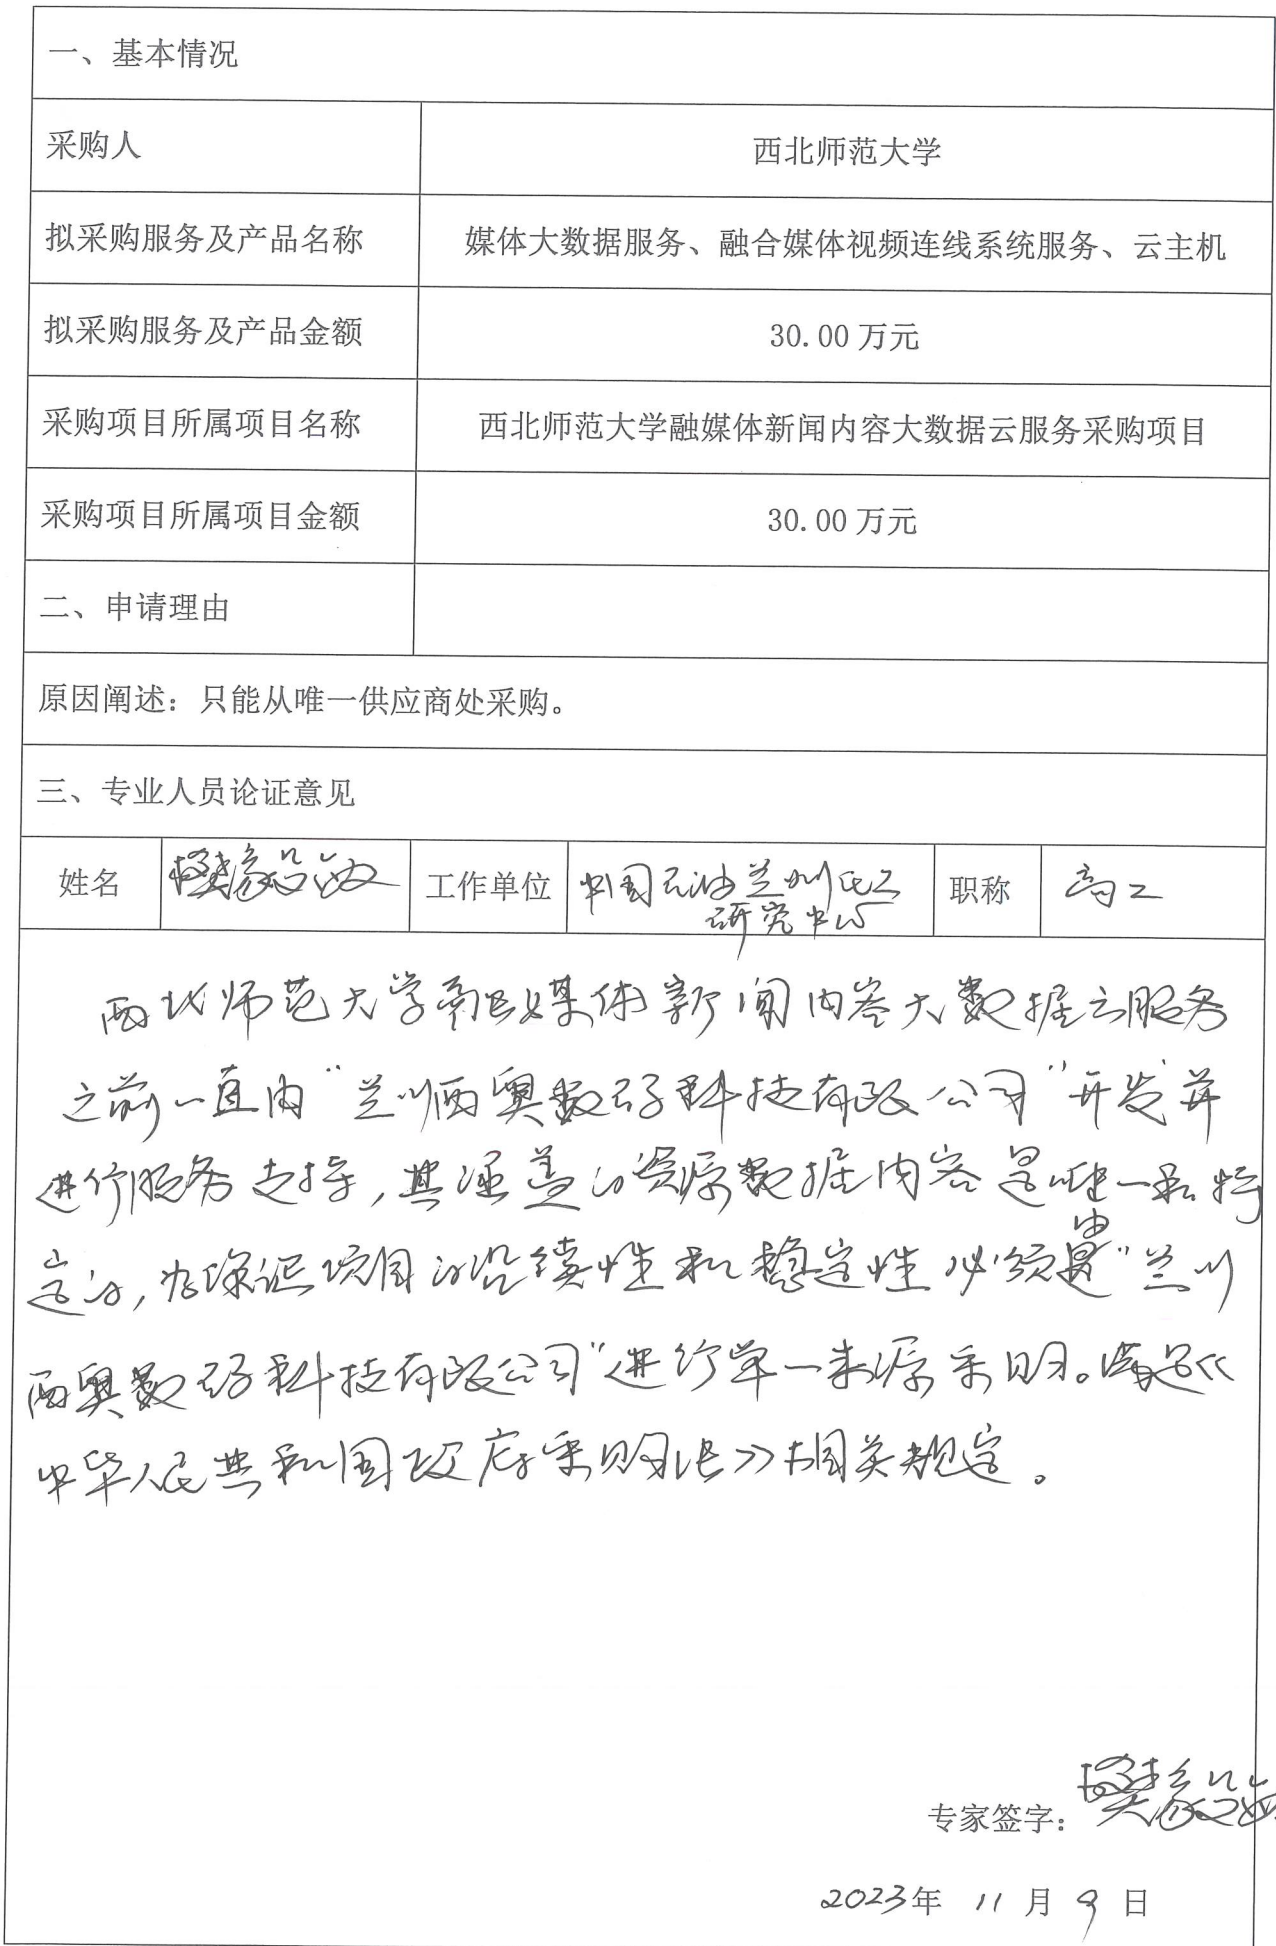 一、基本情况
采购人 西北师范大学
拟采购服务及产品名称 媒体大数据服务、融合媒体视频连线系统服务、云主机
拟采购服务及产品金额 30.00 万元
采购项目所属项目名称 西北师范大学融媒体新闻内容大数据云服务采购项目
采购项目所属项目金额 30.00 万元
二、申请理由
原因阐述：只能从唯一供应商处采购。
三、专业人员论证意见
姓名 樊 工作单位 中国石油兰州化工研究中心 职称 高工
西北师范大学融媒体新闻内容大数据云服务
之前一直由“兰州西奥数码科技有限公司”开发并
进行服务支持，其涵盖的资源数据内容是唯一和特
定的，为保证项目的沿续性和稳定性必须由“兰州
西奥数码科技有限公司”进行单一来源采购。满足《
中华人民共和国政府采购法》相关规定。
专家签字：樊
2023年 11 月 9 日